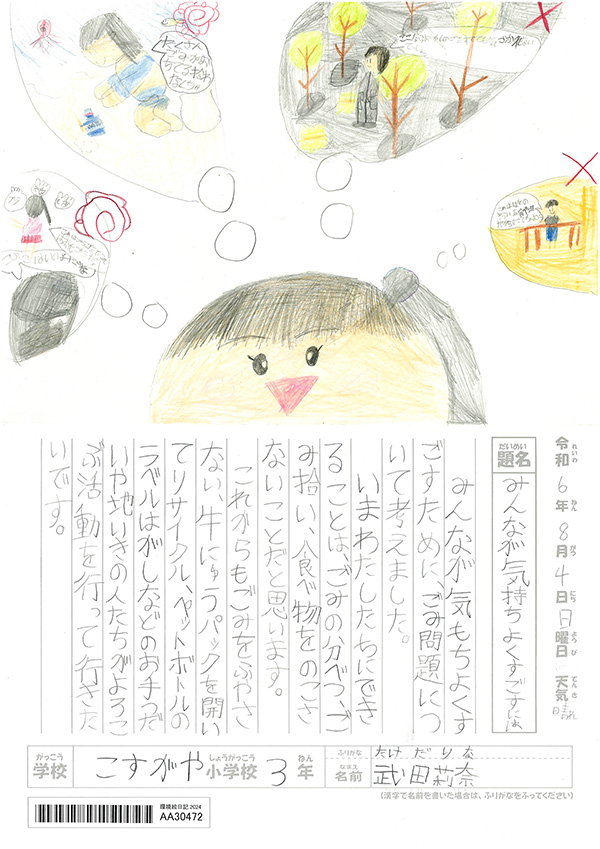 たくさん
令和 6年 8月 4日 日曜日 天気 晴れ
れいわ ねん がつ にち ようび てんき
だいめい
題名
みんなが気持ちよくすごすには
みんなが気もちよくす
ごすために、ごみ問題につ
いて考えました。
いまわたしたちにでき
ることは、ごみの分べつ、ご
み拾い、食べ物をのこさ
ないことだと思います。
これからもごみをふやさ
ない、牛にゅうパックを開い
てリサイクル、ペットボトルの
ラベルはがしなどのお手つだ
いや地いきの人たちがよろこ
ぶ活動を行って行きた
いです。
がっこう しょうがっこう ねん
学校 こすがや 小学校 3年
ふりがな たけ だ り な
なまえ
名前 武田莉奈
(漢字で名前を書いた場合は、ふりがなをふってください)
環境絵日記 2024
AA30472